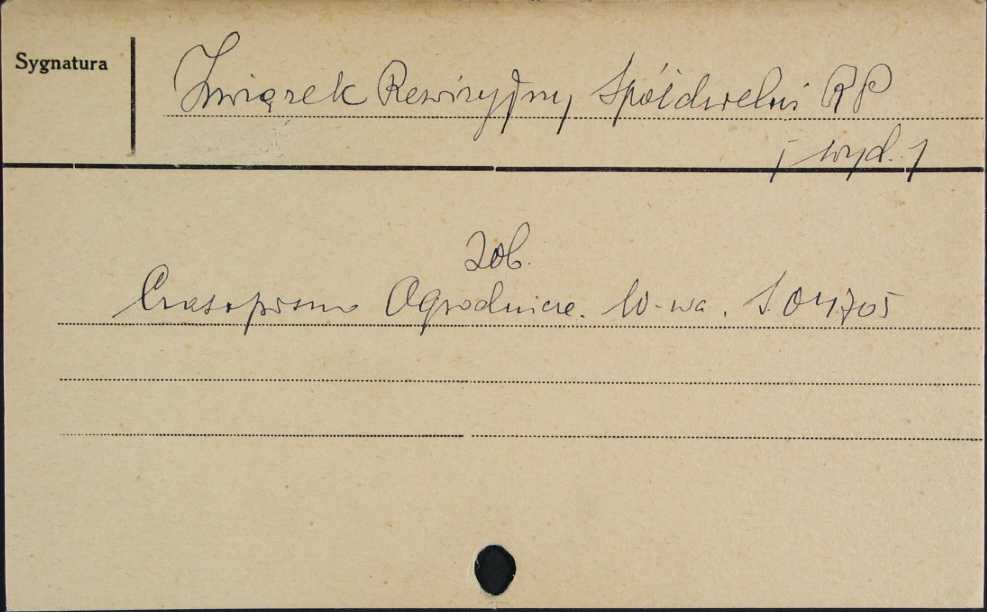 Sygnatura
Związek Rewizyjny Spółdzielni RP
/ wyd. /
Zob.
Czasopismo Ogrodnicze. W-wa.